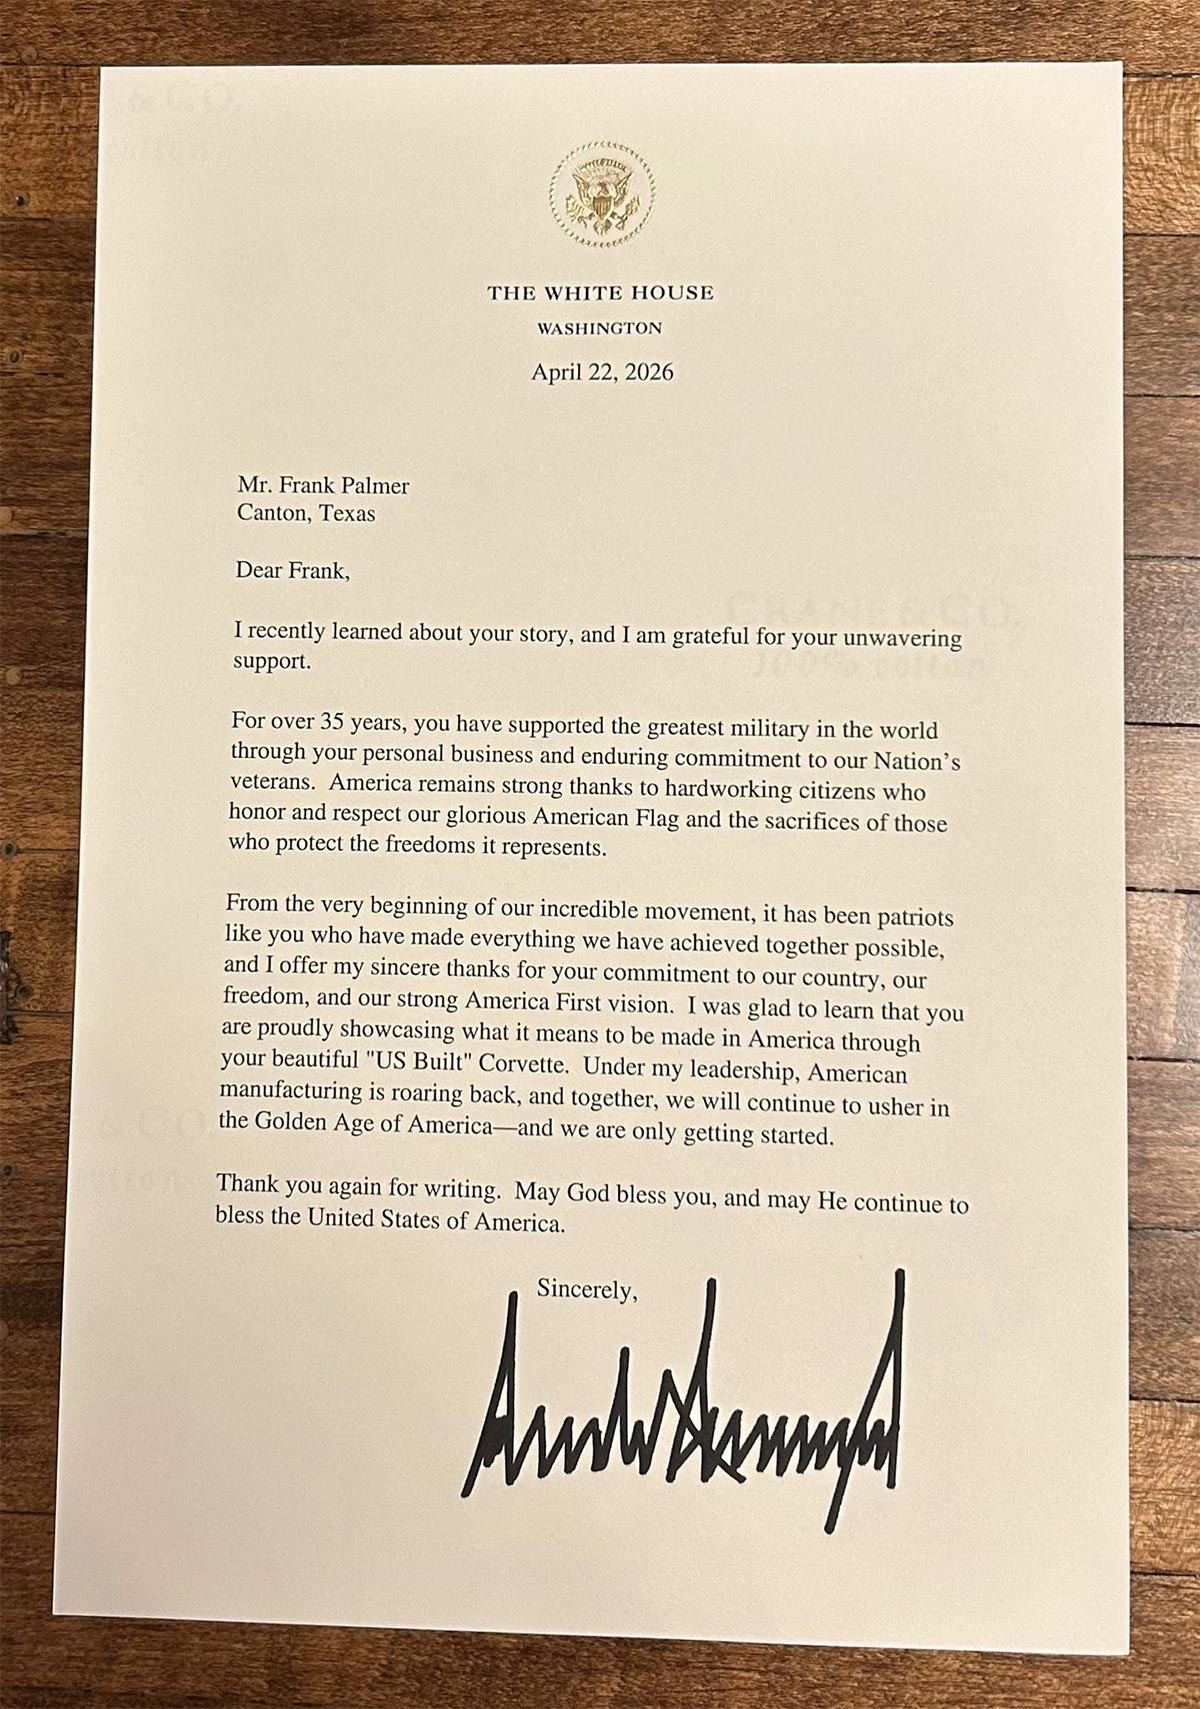 THE WHITE HOUSE
WASHINGTON
April 22, 2026
Mr. Frank Palmer
Canton, Texas
Dear Frank,
I recently learned about your story, and I am grateful for your unwavering
support.
For over 35 years, you have supported the greatest military in the world
through your personal business and enduring commitment to our Nation’s
veterans.  America remains strong thanks to hardworking citizens who
honor and respect our glorious American Flag and the sacrifices of those
who protect the freedoms it represents.
From the very beginning of our incredible movement, it has been patriots
like you who have made everything we have achieved together possible,
and I offer my sincere thanks for your commitment to our country, our
freedom, and our strong America First vision.  I was glad to learn that you
are proudly showcasing what it means to be made in America through
your beautiful "US Built" Corvette.  Under my leadership, American
manufacturing is roaring back, and together, we will continue to usher in
the Golden Age of America—and we are only getting started.
Thank you again for writing.  May God bless you, and may He continue to
bless the United States of America.
Sincerely,
CRANE & CO.
100% cotton
& CO.